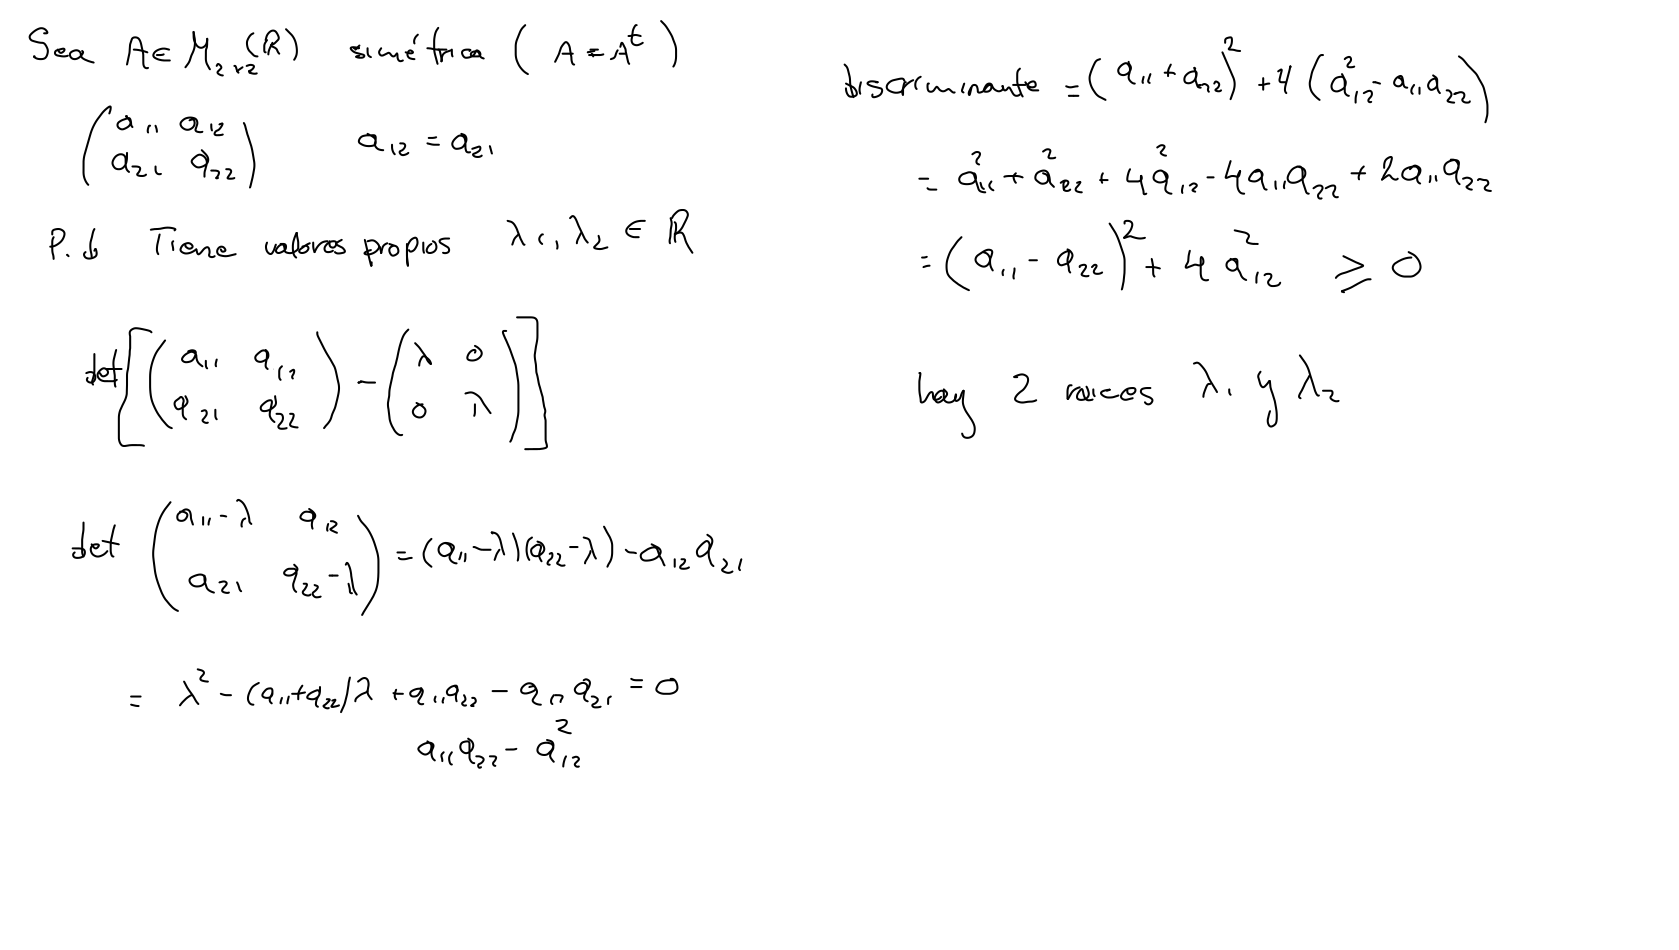 Sea A ∈ M₂ₓ₂(ℝ) simétrica ( A = Aᵗ )
( a₁₁ a₁₂ ; a₂₁ a₂₂ ) a₁₂ = a₂₁
P.d Tiene valores propios λ₁, λ₂ ∈ ℝ
det [ ( a₁₁ a₁₂ ; a₂₁ a₂₂ ) - ( λ 0 ; 0 λ ) ]
det ( a₁₁-λ a₁₂ ; a₂₁ a₂₂-λ ) = (a₁₁-λ)(a₂₂-λ) - a₁₂ a₂₁
= λ² - (a₁₁+a₂₂)λ + a₁₁a₂₂ - a₁₂ a₂₁ = 0
a₁₁a₂₂ - a₁₂²
discriminante = (a₁₁ + a₂₂)² + 4 (a₁₂² - a₁₁a₂₂)
= a₁₁² + a₂₂² + 4a₁₂² - 4a₁₁a₂₂ + 2a₁₁a₂₂
= (a₁₁ - a₂₂)² + 4 a₁₂² ≥ 0
hay 2 raices λ₁ y λ₂